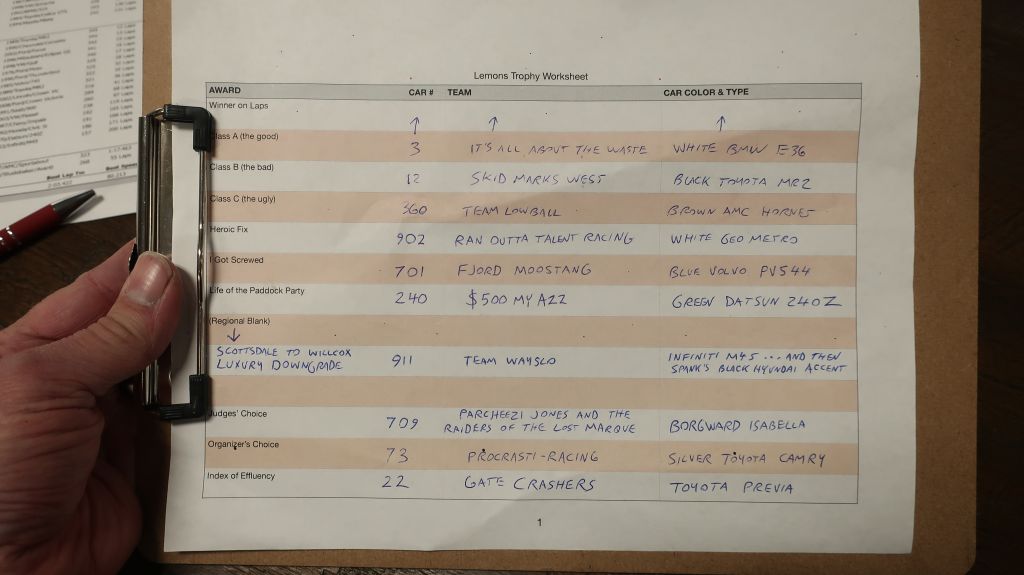 Lemons Trophy Worksheet
AWARD CAR # TEAM CAR COLOR & TYPE
Winner on Laps ↑ ↑ ↑
Class A (the good) 3 IT'S ALL ABOUT THE WASTE WHITE BMW E36
Class B (the bad) 12 SKID MARKS WEST BLACK TOYOTA MR2
Class C (the ugly) 360 TEAM LOWBALL BROWN AMC HORNET
Heroic Fix 902 RAN OUTTA TALENT RACING WHITE GEO METRO
I Got Screwed 701 FJORD MOOSTANG BLUE VOLVO PV544
Life of the Paddock Party 240 $500 MY AZZ GREEN DATSUN 240Z
(Regional Blank)
↓
SCOTTSDALE TO WILLCOX
LUXURY DOWNGRADE 911 TEAM WAYSLO INFINITI M45 ... AND THEN
SPANK'S BLACK HYUNDAI ACCENT
Judges' Choice 709 PARCHEEZI JONES AND THE
RAIDERS OF THE LOST MARQUE BORGWARD ISABELLA
Organizer's Choice 73 PROCRASTI-RACING SILVER TOYOTA CAMRY
Index of Effluency 22 GATE CRASHERS TOYOTA PREVIA
1